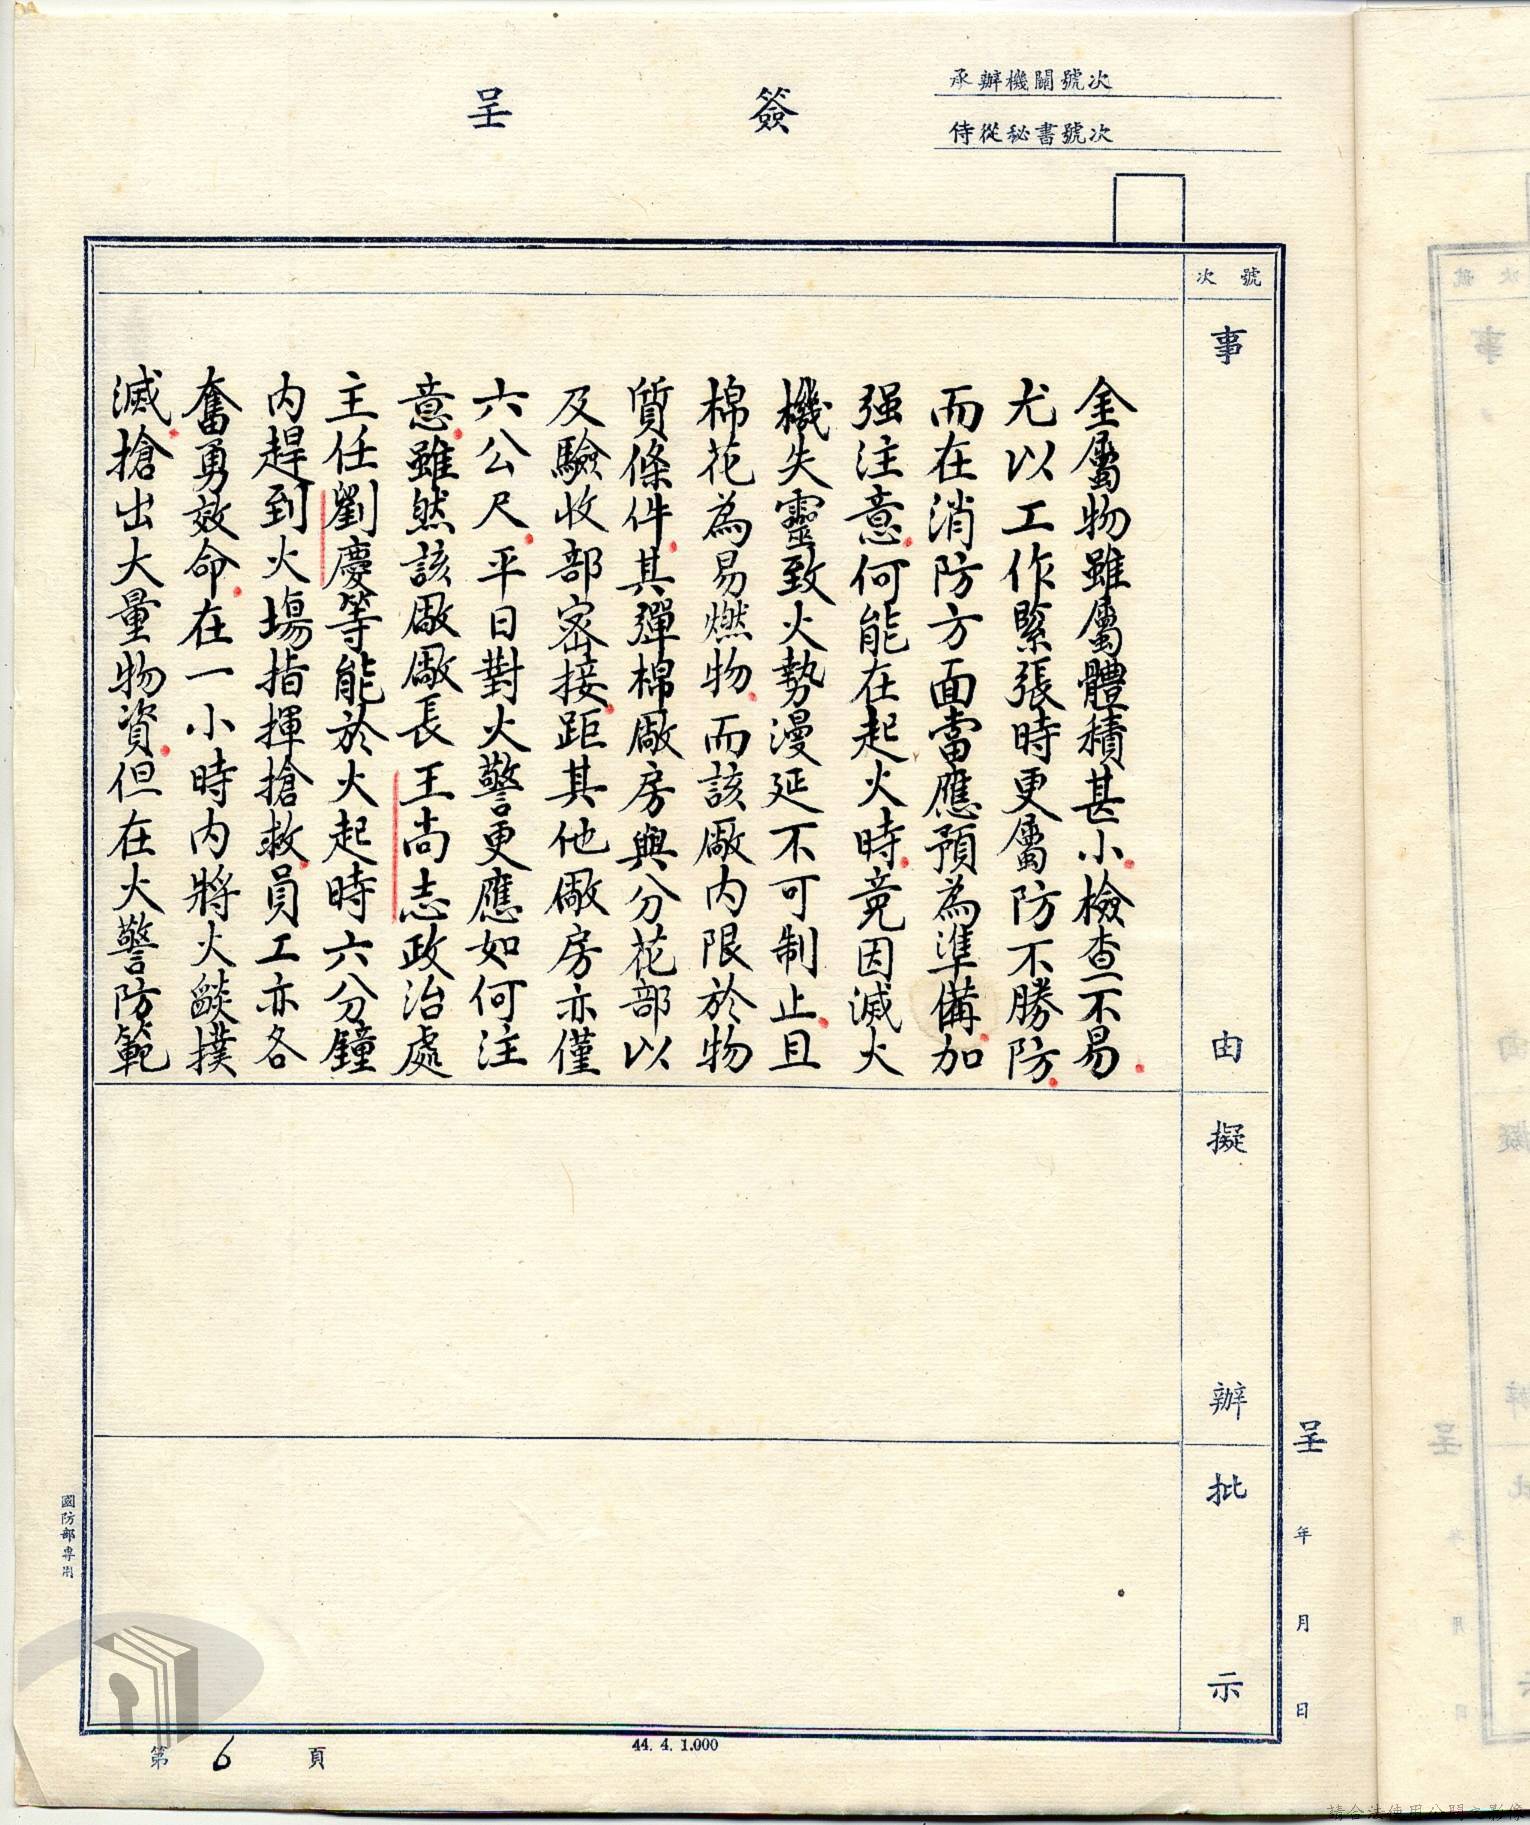 簽呈
承辦機關號次
侍從秘書號次
號次
事由
擬辦
批示
金屬物雖屬體積甚小檢查不易
尤以工作緊張時更屬防不勝防
而在消防方面當應預為準備加
强注意何能在起火時竟因滅火
機失靈致火勢漫延不可制止且
棉花為易燃物而該廠内限於物
質條件其彈棉廠房與分花部以
及驗收部密接距其他廠房亦僅
六公尺平日對火警更應如何注
意雖然該廠廠長王尚志政治處
主任劉慶等能於火起時六分鐘
内趕到火場指揮搶救員工亦各
奮勇效命在一小時内將火燄撲
滅搶出大量物資但在火警防範
呈 年 月 日
國防部專用
第6頁
44. 4. 1.000
請合法使用公開之影像